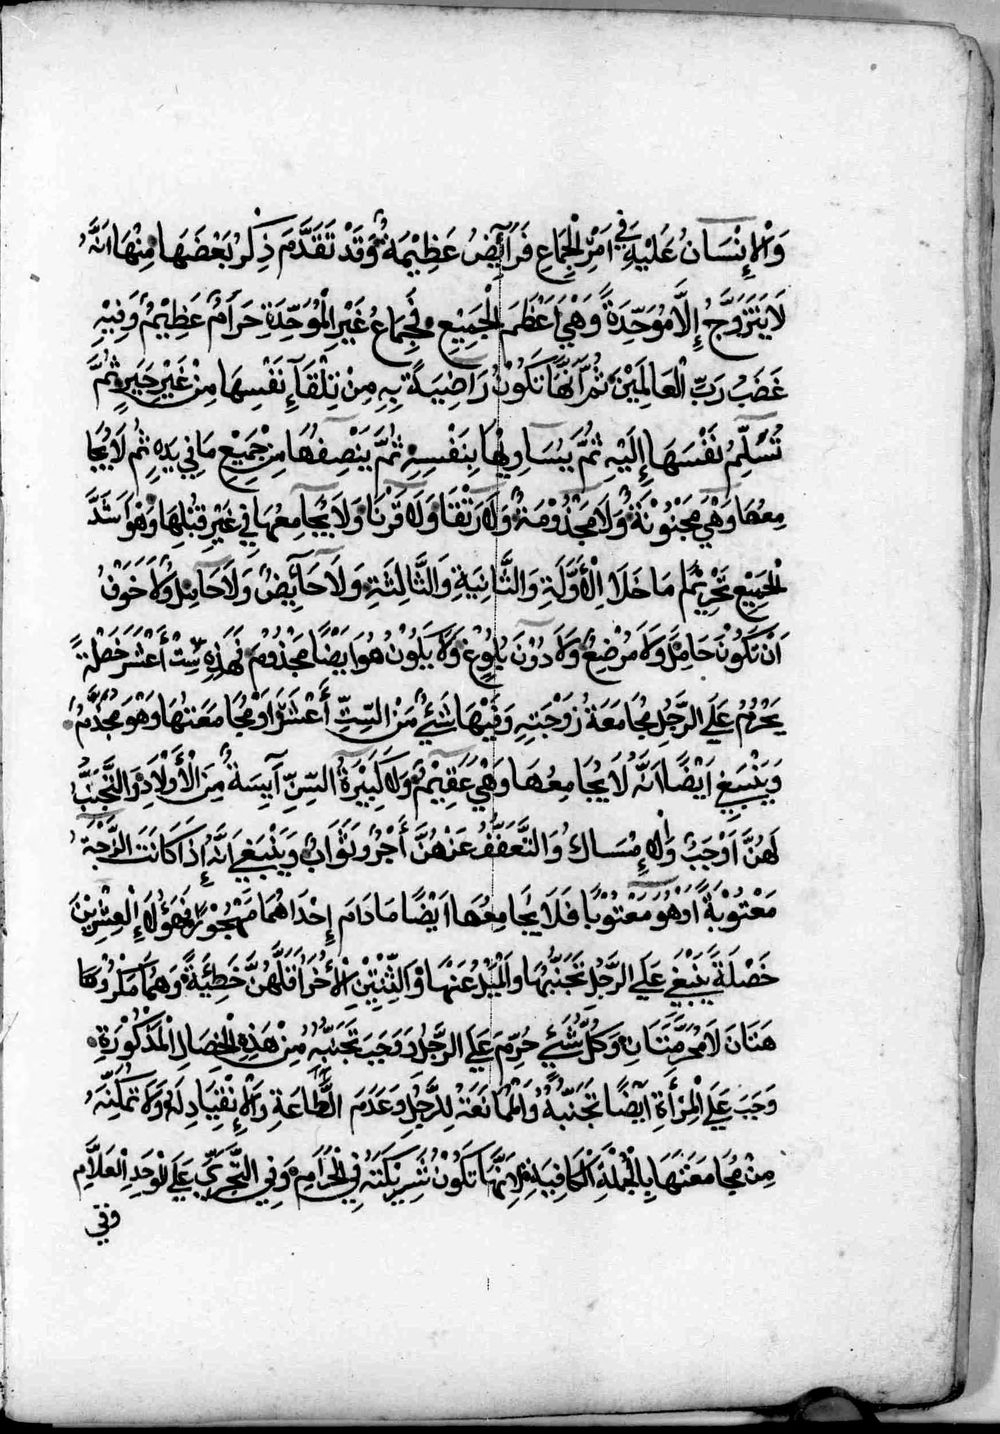 وَالْإِنْسَانُ عَلَيْهِ فِي أَمْرِ الْجِمَاعِ فَرَآئِضُ عَظِيْمَةٌ وَقَدْ تَقَدَّمَ ذِكْرُ بَعْضَهَا مِنْهَا اَنَّهُ
لَا يَتَزَوَّجُ إِلَّا مُوَحِّدَةً وَهْيَ اَعْظَمَ الْجَمِيْعِ فَجِمَاعُ غَيْرِ الْمُوَحِّدَةِ حَرَامٌ عَظِيْمٌ وَفِيْهِ
غَضَبُ رَبِّ الْعَالَمِيْنَ ثُمَّ اَنَّهَا تَكُوْنُ رَاضِيَةً بِهِ مِنْ تِلْقَآءِ نَفْسِهَا مِنْ غَيْرِ جَبْرٍ ثُمَّ
تُسَلِّمُ نَفْسَهَا إِلَيْهِ ثُمَّ يُسَاوِيْهَا بِنَفْسِهِ ثُمَّ يَنْصِفُهَا مِنْ جَمِيْعِ مَا فِي يَدِهِ ثُم لَا يُجَا
مِعُهَا وَهْيَ مَجْنُوْنَةٌ وَلَا مَجْذُوْمَةٌ وَلَا رَتْقَا وَلَا قَرْنَا وَلَا يُجَامِعُهَا فِي غَيْرِ قُبْلِهَا وَهْوَ اَشَدَّ
الْجَمِيْعِ تَحْرِيْمٌ مَا خَلَا الْأَوَّلَةِ وَالثَّانِيَةِ وَالثَّالِثَةِ وَلَا حَآيِضٌ وَلَا حَامِلٌ وَلَا خَوْفُ
اَنْ تَكُوْنَ حَامِلٌ وَلَا مُرْضِعٌ وَلَا دُوْنَ بُلُوْغٍ وَلَا يَكُوْنُ هُوَ اَيْضًا مَجْذُوْمٌ فَهَذِهِ سِتْ أَعْشَرَ خَصْلَةً
يَحْرُمُ عَلَى الرَّجُلِ مُجَامَعَةُ زَوْجَتِهِ وَفِيْهَا شَيْءٌ مِنَ السِّتِّ أَعْشَرَ اَوْ مُجَامَعَتُهَا وَهْوَ مُجَذَّمٌ
وَيَنْبَغِي اَيْضًا اَنَّهُ لَا يُجَامِعُهَا وَهْيَ عَقِيْمٌ وَلَا كَبِيْرَةُ السِّنِّ آيِسَةٌ مِنَ الْأَوْلَادِ وَالتَّجَنُّبُ
لَهُنَّ اَوْجَبُ وَالْإِمْسَاكُ وَالتَّعَفُّفُ عَنْهُنَّ أَجْرٌ وَثَوَابٌ وَيَنْبَغِي اَنَّهُ إِذَا كَانَتَ الزَّوْجَةُ
مَعْتُوْبَةً اَوْ هُوَ مَعْتُوْبًا فَلَا يُجَامِعُهَا اَيْضًا مَا دَامَ إِحْدَاهُمَا مَهْجُوْرٌ فَهَؤُلَاءِ الْعِشْرِيْنَ
خَصْلَةً يَنْبَغِي عَلَى الرَّجُلِ تَجَنُّبُهَا وَالْمَيْلُ عَنْهَا وَالثِّنْتَيْنِ الْأُخْرَ اَقَلُّهُنَّ خَطِئَيَةً وَهُمَا مَكْرُوْهَا
هَتَانَ لَا مُحَرَّمَتَانِ وَكُلُّ شَيْءٍ حُرِّمَ عَلَى الرَّجُلِ وَوَجَبَ تَجَنُّبُهُ مِنْ هَذِهِ الْخِصَالِ الْمَذْكُوْرَةِ
وَجَبَ عَلَى الْمَرْأَةِ اَيْضًا تَجَنُّبُهُ وَالْمُمَانَعَةُ لِلرَّجُلِ وَعَدَمَ الطَّاعَةِ وَالْإِنْقِيَادِ لَهُ وَلَا تُمَكِّنُهُ
مِنْ مُجَامَعَتِهَا بِالْجُمْلَةِ الْكَافِيَةِ لِاَنَّهَا تَكُوْنُ شَرِيْكَتَهُ فِي الْحَرَامِ وَفِي التَّجَرِّي عَلَى الْوَحِدِ الْعَلَّامِ
وَفِي